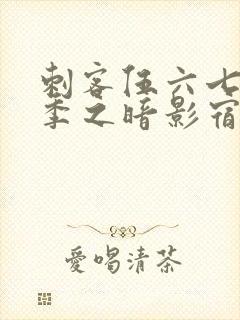 刺客伍六七
季之暗影宿
愛喝清茶